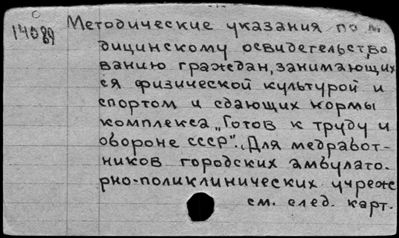 14089 Методические указания по ме
дицинскому освидетельство
ванию граждан, занимающих
ся физической культурой и
спортом и сдающих нормы
комплекса „Готов к труду и
обороне СССР". Для медработ-
ников городских амбулато-
рно-поликлинических учреж
см. след. карт.